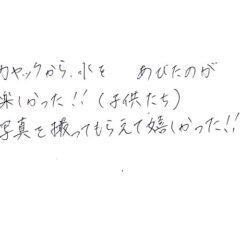 カヤックから、水を あびたのが
楽しかった!! (子供たち)
写真を撮ってもらえて嬉しかった!!